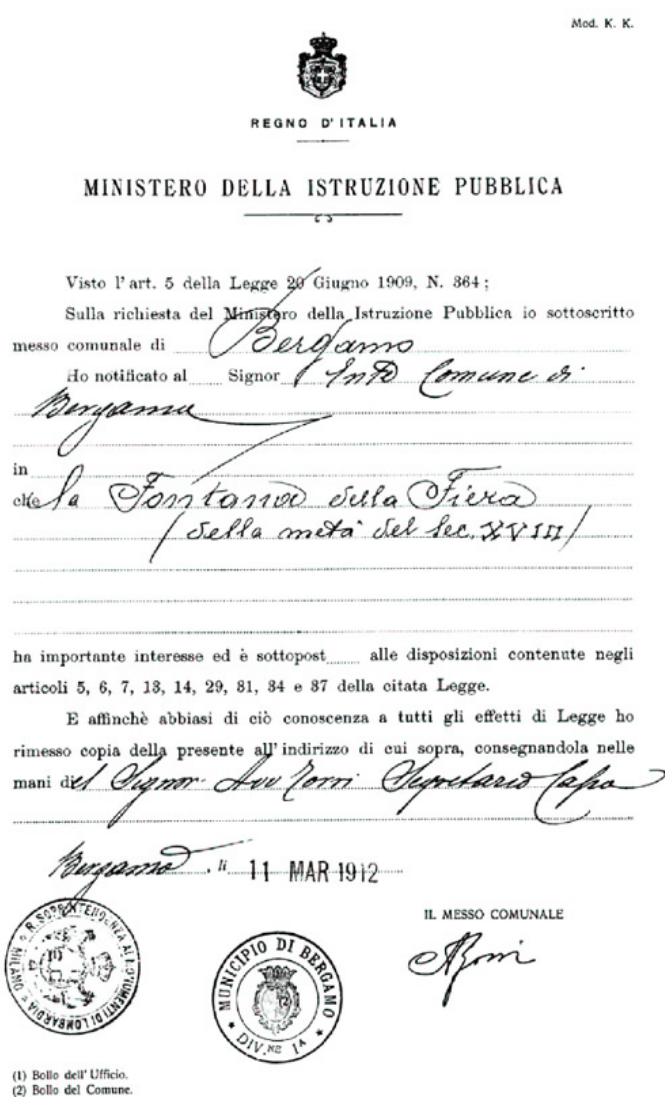 Mod. K. K.
REGNO D'ITALIA
MINISTERO DELLA ISTRUZIONE PUBBLICA
Visto l'art. 5 della Legge 20 Giugno 1909, N. 364;
Sulla richiesta del Ministero della Istruzione Pubblica io sottoscritto
messo comunale di Bergamo
Ho notificato al Signor Ente Comune di
Bergamo
in
che la Fontana della Fiera
(della metà del sec. XVIII)
ha importante interesse ed è sottopost alle disposizioni contenute negli
articoli 5, 6, 7, 13, 14, 29, 31, 34 e 37 della citata Legge.
E affinchè abbiasi di ciò conoscenza a tutti gli effetti di Legge ho
rimesso copia della presente all'indirizzo di cui sopra, consegnandola nelle
mani del Signor Avv Segretario Capo
Bergamo, li 11 MAR 1912
IL MESSO COMUNALE
R. SOPRINTENDENZA AI MONUMENTI DI LOMBARDIA
MILANO
MUNICIPIO DI BERGAMO
DIV.NE 1A
(1) Bollo dell'Ufficio.
(2) Bollo del Comune.